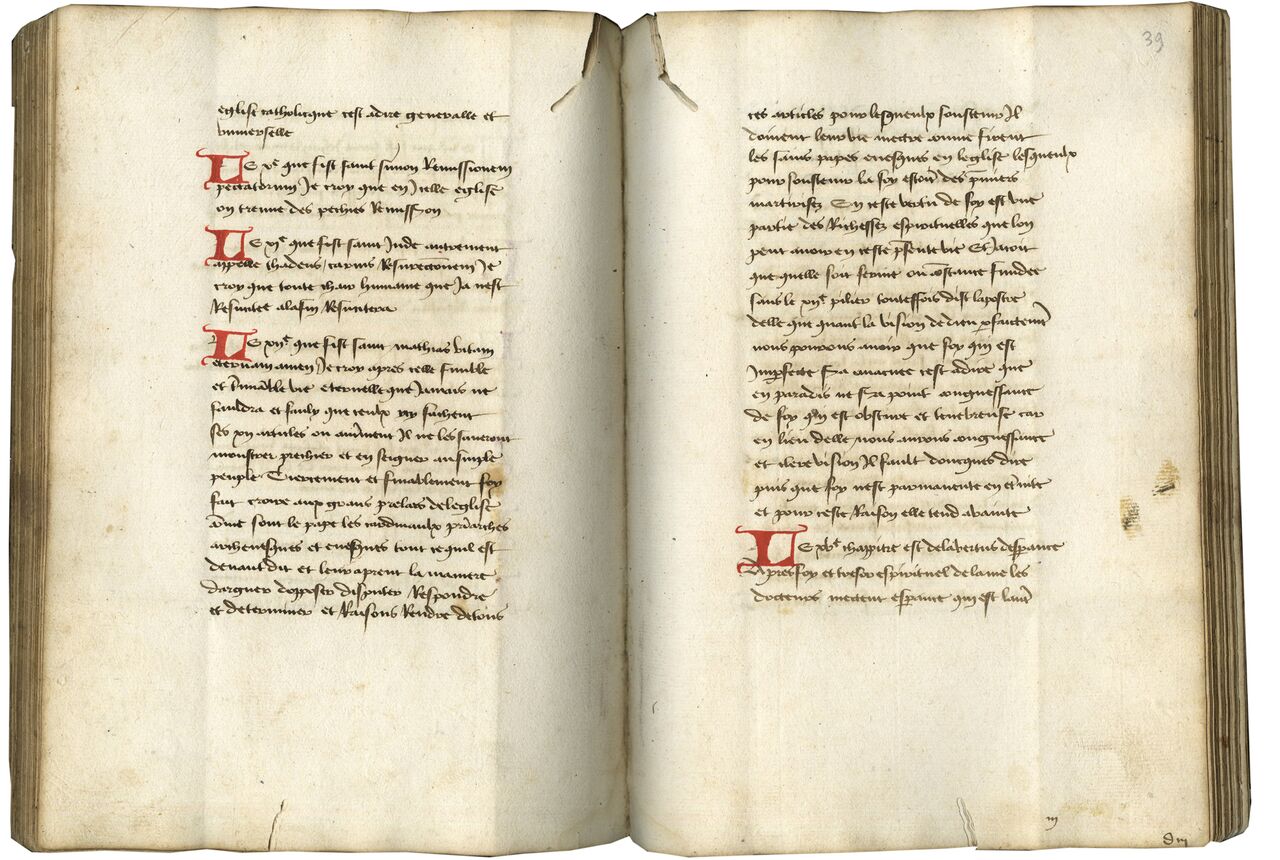 eglise catholicque cest adire generalle et
vniverselle
Le xe que fist saint simon Remissionem
peccatorum Je croy que en Icelle eglise
on treuue des pechies Remission
Le xie que fist saint Jude autrement
appelle thadeus carnis Resurectionem Je
croy que toute chair humaine que Ja nest
Resuscitera
Le xiie que fist saint mathias vitam
eternam amen Je croy apres celle
et vie eternelle que Jamais ne
fauldra et que ceulx
ses xii articles ou Il ne les saueront
monstrer preschier et en seigner au simple
peuple Tiercement et finablement foy
fait croire aux grans prelas de leglise
come sont le pape les cardinaulx
archeuesques et euesques tout ce quil est
deuant dit et leur aprent la maniere
darguer dopposer disputer Respondre
et determiner et Raisons Rendre de tous
39
ces articles pour lesqueulx soustenir Il
doiuent leur vie mectre come firent
les sains papes euesques en leglise lesqueulx
pour soustenir la foy des
martirises En ceste vertu de foy est vne
partie des Richesses espirituelles que lon
peut auoir en ceste presente vie Et
que quelle soit ferme ou constante fundee
sans le xiie pilier touteffois dist lapostre
delle que quant la vision de dieu
nous pourons auoir que foy qui est
Imperfecte sera euacuee cest adire que
en paradis ne sera point congnessance
de foy qui est obscure et tenebreuse car
en lieu delle nous aurons congnessance
et clere vision Il fault doncques dire
puis que foy nest parmanente en
et pour ceste Raison elle tend
Le xve chappitre est de la vertus desperance
Apres foy et tresor espirituel de lame les
docteurs mectent esperance qui est